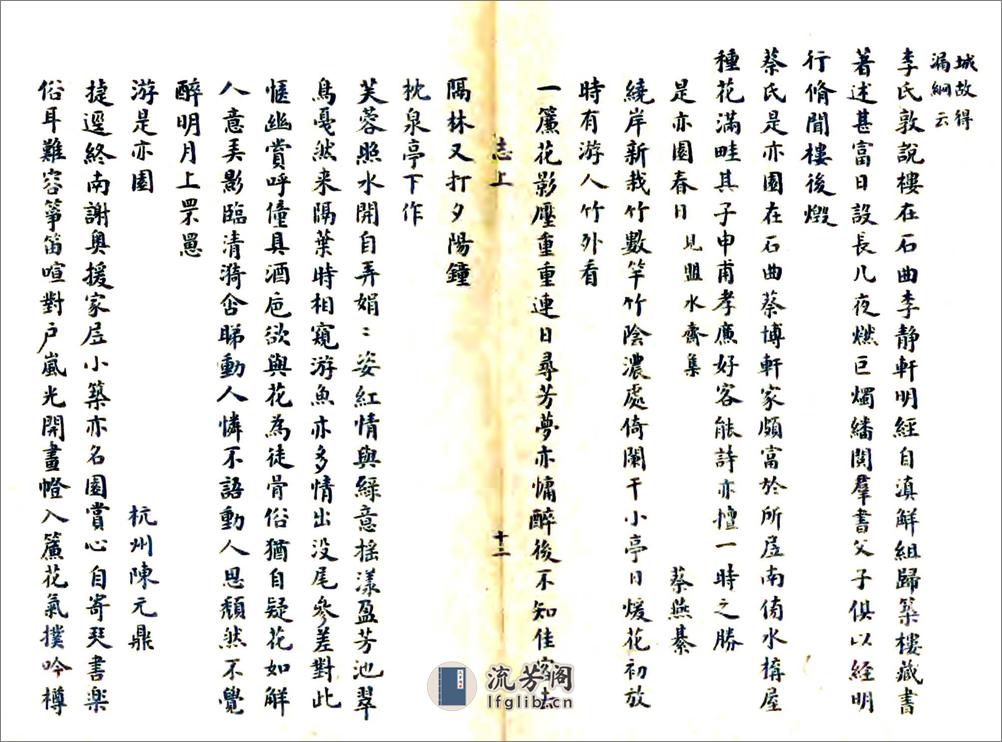 城故得
漏綱云
李氏敦說樓在石曲李静軒明經自滇解組歸築樓藏書
著述甚富日設長几夜燃巨燭繙閱羣書父子俱以經明
行脩聞樓後燬
蔡氏是亦園在石曲蔡博軒家頗富於所居南偹水搆屋
種花滿畦其子申甫孝廉好客能詩亦擅一時之勝
是亦園春日 見盟水齋集 蔡燕綦
繞岸新栽竹數竿竹陰濃處倚闌干小亭日煖花初放
時有游人竹外看
一簾花影壓重重連日尋芳夢亦慵醉後不知佳客去
隔林又打夕陽鐘
志上 十二
枕泉亭下作
芙蓉照水開自弄娟〻姿紅情與綠意摇漾盈芳池翠
鳥戞然来隔葉時相窺游魚亦多情出没尾參差對此
愜幽賞呼僮具酒巵欲與花為徒骨俗猶自疑花如解
人意美影臨清漪含睇動人憐不語動人思頹然不覺
醉明月上罘罳
游是亦園 杭州陳元鼎
捷逕終南謝奥援家居小築亦名園賞心自寄琴書楽
俗耳難容箏笛喧對户嵐光開畫幨入簾花氣撲吟樽
流芳阁
lfglib.cn